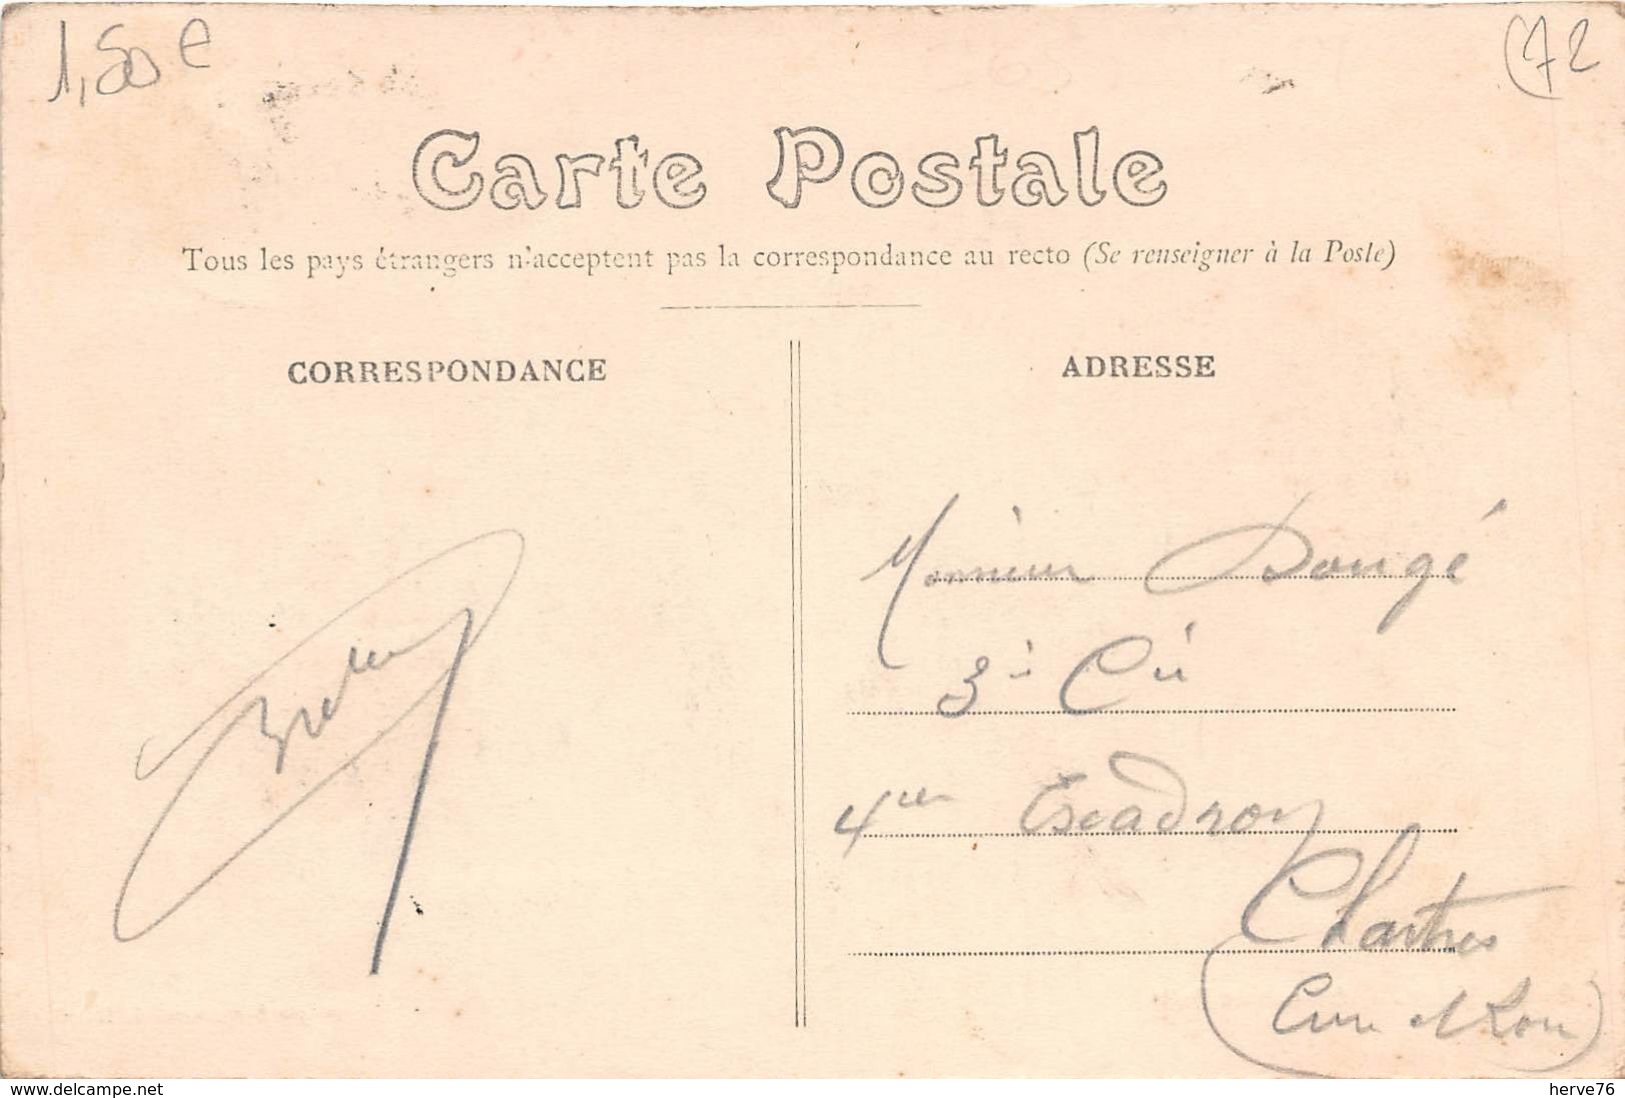 1,50 e
(72
Carte Postale
Tous les pays étrangers n'acceptent pas la correspondance au recto (Se renseigner à la Poste)
CORRESPONDANCE
ADRESSE
Monsieur Dougé
3è Cié
4em Escadron
Chartres
(Eure et Loir)
delcampe.net
herve76